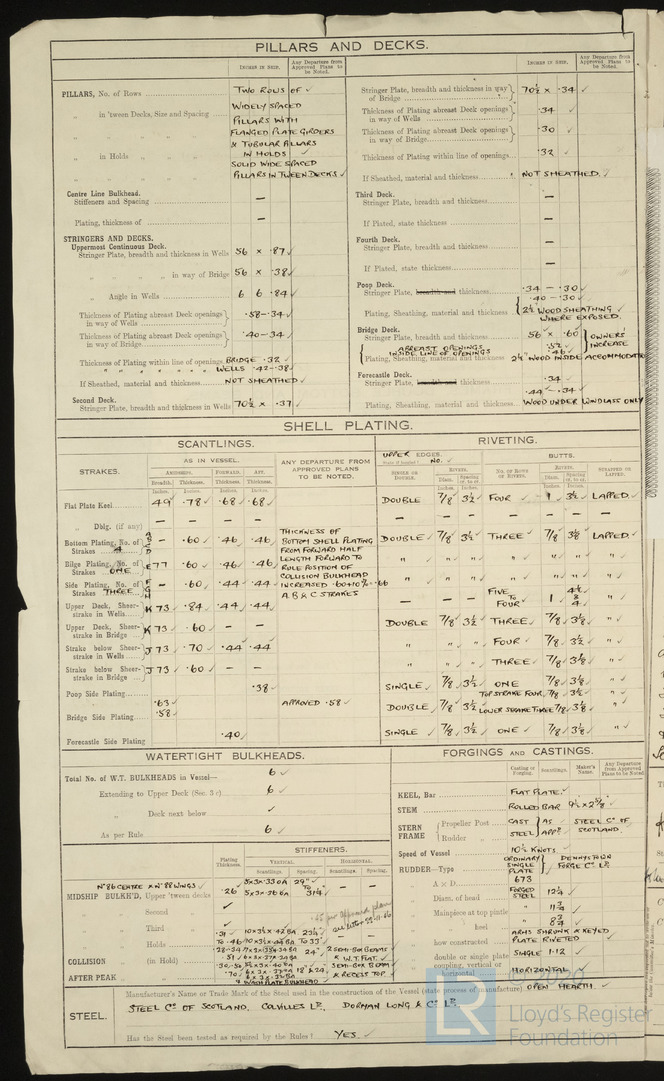 PILLARS AND DECKS.
INCHES IN SHIP.
Any Departure from Approved Plans to be Noted.
PILLARS, No. of Rows
TWO ROWS OF
WIDELY SPACED
" in 'tween Decks, Size and Spacing
PILLARS WITH
FLANGED PLATE GIRDERS
& TUBULAR PILLARS
" in Holds " "
IN HOLDS
SOLID WIDE SPACED
PILLARS IN TWEEN DECKS
Centre Line Bulkhead.
Stiffeners and Spacing —
Plating, thickness of —
STRINGERS AND DECKS.
Uppermost Continuous Deck.
Stringer Plate, breadth and thickness in Wells 56 × .87
" " " " in way of Bridge 56 × .38
" Angle in Wells 6 6 .84
Thickness of Plating abreast Deck openings in way of Wells .58-.34
Thickness of Plating abreast Deck openings in way of Bridge .40-.34
Thickness of Plating within line of openings BRIDGE .32
WELLS .42-.38
If Sheathed, material and thickness NOT SHEATHED
Second Deck.
Stringer Plate, breadth and thickness in Wells 70½ × .37
INCHES IN SHIP.
Any Departure from Approved Plans to be Noted.
Stringer Plate, breadth and thickness in way of Bridge 70½ × .34
Thickness of Plating abreast Deck openings in way of Wells .34
Thickness of Plating abreast Deck openings in way of Bridge .30
Thickness of Plating within line of openings .32
If Sheathed, material and thickness NOT SHEATHED.
Third Deck.
Stringer Plate, breadth and thickness —
If Plated, state thickness —
Fourth Deck.
Stringer Plate, breadth and thickness —
If Plated, state thickness —
Poop Deck.
Stringer Plate, breadth and thickness .34 - .30
.40 - .30
Plating, Sheathing, material and thickness 2½ WOOD SHEATHING
WHERE EXPOSED.
Bridge Deck.
Stringer Plate, breadth and thickness 56 × .60 OWNERS' INCREASE
ABREAST OPENINGS .52
INSIDE LINE OF OPENINGS .46
Plating, Sheathing, material and thickness 2½" WOOD INSIDE ACCOMMODATION
Forecastle Deck.
Stringer Plate, breadth and thickness .34
.44 .34
Plating, Sheathing, material and thickness WOOD UNDER WINDLASS ONLY
SHELL PLATING.
SCANTLINGS.
RIVETING.
STRAKES.
AS IN VESSEL.
ANY DEPARTURE FROM APPROVED PLANS TO BE NOTED.
UPPER EDGES. No.
BUTTS.
AMIDSHIPS. FORWARD. AFT.
Breadth. Thickness. Thickness. Thickness.
SINGLE OR DOUBLE.
RIVETS.
Diam. Spacing cr. to cr.
NO. OF ROWS OF RIVETS.
RIVETS.
Diam. Spacing cr. to cr.
STRAPPED OR LAPPED.
Inches. Inches. Inches. Inches.
Flat Plate Keel 49 .78 .68 .68 DOUBLE 7/8 3½ FOUR 1 3½ LAPPED.
" Dblg. (if any) — — — —
Bottom Plating, No. of Strakes 4 A B C D - .60 .46 .46 DOUBLE 7/8 3½ THREE 7/8 3⅛ LAPPED.
THICKNESS OF
BOTTOM SHELL PLATING
FROM FORWARD HALF
LENGTH FORWARD TO
RULE POSITION OF
COLLISION BULKHEAD
INCREASED .60+10%=.66
A.B & C STRAKES
Bilge Plating, No. of Strakes ONE E 77 .60 .46 .46 " " " " " " "
Side Plating, No. of Strakes THREE F G H - .60 .44 .44 " " " " " " "
Upper Deck, Sheerstrake in Wells K 73 .84 .44 .44 — — — FIVE TO FOUR 1 "
Upper Deck, Sheerstrake in Bridge K 73 .60 — — DOUBLE 7/8 3½ THREE 7/8 3⅛ "
Strake below Sheerstrake in Wells J 73 .70 .44 .44 " " " FOUR 7/8 3½ "
Strake below Sheerstrake in Bridge J 73 .60 — — " " " THREE 7/8 3⅛ "
Poop Side Plating .38 SINGLE 7/8 3½ ONE 7/8 3⅛ "
Bridge Side Plating .63 .58 APPROVED .58 DOUBLE 7/8 3½ TOP STRAKE FOUR, 7/8 3½
LOWER STRAKE THREE 7/8 3⅛ "
Forecastle Side Plating .40 SINGLE 7/8 3½ ONE 7/8 3⅛ "
WATERTIGHT BULKHEADS.
Total No. of W.T. BULKHEADS in Vessel— 6
Extending to Upper Deck (Sec. 3 c) 6
" Deck next below
As per Rule 6
Plating Thickness.
STIFFENERS.
VERTICAL. HORIZONTAL.
Scantlings. Spacing. Scantlings. Spacing.
Nº 86 CENTRE & Nº 88 WINGS
MIDSHIP BULK'D, Upper 'tween decks .26 29" TO 31¼ — —
" Second "
" Third " .31 23¼
.45 per approved plan
" Holds TO .46 TO 33"
COLLISION " (in Hold) 24" & W.T. FLAT.
AFTER PEAK " " 18" & 24" & RECESS TOP
& WASH PLATE BULKHEAD
FORGINGS AND CASTINGS.
Casting or Forging. Scantlings. Maker's Name. Any Departure from Approved Plans to be Noted
KEEL, Bar FLAT PLATE.
STEM ROLLED BAR
STERN FRAME Propeller Post CAST AS STEEL Cº OF
Rudder " STEEL APPD SCOTLAND.
Speed of Vessel 10½ KNOTS.
RUDDER—Type ORDINARY SINGLE PLATE DENNYSTOWN FORGE Cº Lº
" A × D 673
" Diam. of head FORGED STEEL 12¼
" Mainpiece at top pintle " 11¾
" " heel " 8¾
" how constructed ARMS SHRUNK & KEYED
PLATE RIVETED
" double or single plate SINGLE 1.12
" coupling, vertical or horizontal HORIZONTAL
STEEL.
Manufacturer's Name or Trade Mark of the Steel used in the construction of the Vessel (state process of manufacture) OPEN HEARTH.
STEEL Cº OF SCOTLAND, COLVILLES Lº, DORMAN LONG & Cº Lº.
Has the Steel been tested as required by the Rules? YES.
LR
Lloyd's Register
Foundation